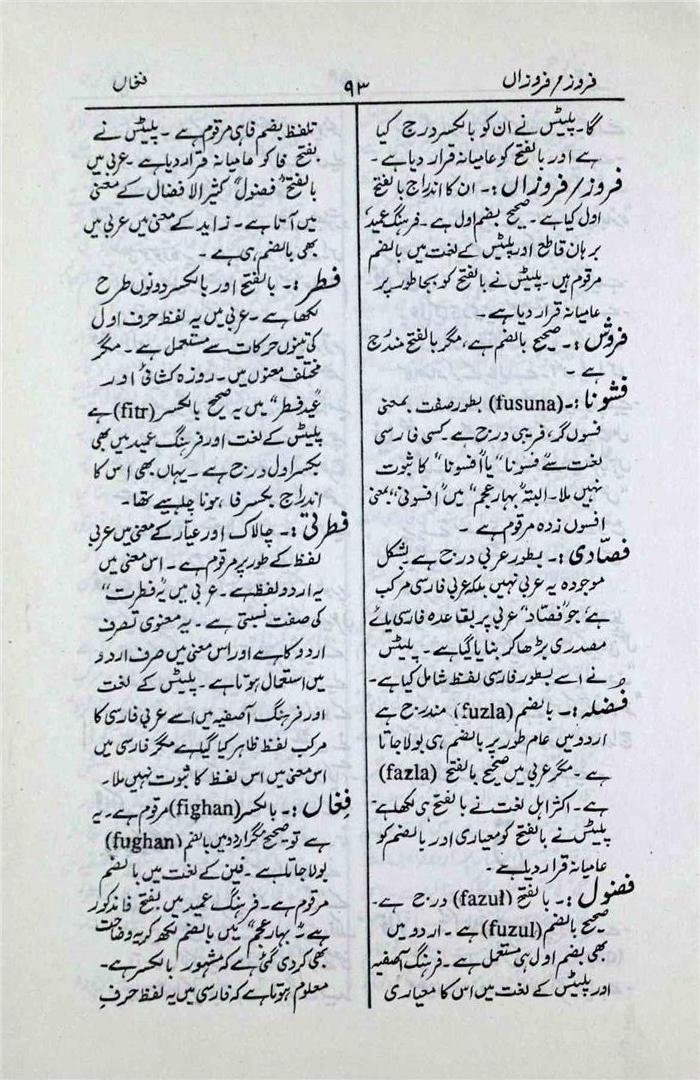 فروز/فروزاں
۹۳
فغاں
گا۔ پلیٹس نے ان کو بالکسر درج کیا
ہے اور بالفتح کو عامیانہ قرار دیا ہے۔
فروز/فروزاں :۔ ان کا اندراج بالفتح
اول کیا ہے۔ صحیح بضم اول ہے۔ فرہنگ عمید
برہان قاطع اور پلیٹس کے لغت میں بالضم
مرقوم ہیں۔ پلیٹس نے بالفتح کو بجا طور پر
عامیانہ قرار دیا ہے۔
فروش :۔ صحیح بالضم ہے، مگر بالفتح مندرج
ہے۔
فسونا :۔ (fusuna) بطور صفت بمعنی
فسوں گر، فریبی درج ہے۔ کسی فارسی
لغت سے "فسونا" یا "افسونا" کا ثبوت
نہیں ملا۔ البتہ "بہار عجم" میں "افسونی" بمعنی
افسوں زدہ مرقوم ہے۔
فصّادی :۔ بطور عربی درج ہے۔ بشکل
موجودہ یہ عربی نہیں بلکہ عربی فارسی مرکب
ہے، جو "فصّاد" عربی پر بقاعدہ فارسی یائے
مصدری بڑھا کر بنایا گیا ہے۔ پلیٹس
نے اسے بطور فارسی لفظ شامل کیا ہے۔
فضلہ :۔ بالضم (fuzla) مندرج ہے
اردو میں عام طور پر بالضم ہی بولا جاتا
ہے۔ مگر عربی میں صحیح بالفتح (fazla)
ہے۔ اکثر اہل لغت نے بالفتح ہی لکھا ہے۔
پلیٹس نے بالفتح کو معیاری اور بالضم کو
عامیانہ قرار دیا ہے۔
فضول :۔ بالفتح (fazul) درج ہے۔
صحیح بالضم (fuzul) ہے۔ اردو میں
بھی بضم اول ہی مستعمل ہے۔ فرہنگ آصفیہ
اور پلیٹس کے لغت میں اس کا معیاری
تلفظ بضم فا ہی مرقوم ہے۔ پلیٹس نے
بفتح فا کو عامیانہ قرار دیا ہے۔ عربی میں
بالفتح "فضول" کثیر الافضال کے معنی
میں آتا ہے۔ زاید کے معنی میں عربی میں
بھی بالضم ہی ہے۔
فطر :۔ بالفتح اور بالکسر دونوں طرح
لکھا ہے۔ عربی میں یہ لفظ حرف اول
کی تینوں حرکات سے مستعمل ہے۔ مگر
مختلف معنوں میں۔ روزہ کشائی اور
"عید فطر" میں یہ صحیح بالکسر (fitr) ہے
پلیٹس کے لغت اور فرہنگ عمید میں بھی
بکسر اول درج ہے۔ یہاں بھی اس کا
اندراج بکسر فا، ہونا چاہیے تھا۔
فطرتی :۔ چالاک اور عیّار کے معنی میں عربی
لفظ کے طور پر مرقوم ہے۔ اس معنی میں
یہ اردو لفظ ہے۔ عربی میں یہ "فطرت"
کی صفت نسبتی ہے۔ یہ معنوی تصرف
اردو کا ہے اور اس معنی میں صرف اردو
میں استعمال ہوتا ہے۔ پلیٹس کے لغت
اور فرہنگ آصفیہ میں اسے عربی فارسی کا
مرکب لفظ ظاہر کیا گیا ہے مگر فارسی میں
اس معنی میں اس لفظ کا ثبوت نہیں ملا۔
فغاں :۔ بالکسر (fighan) مرقوم ہے۔ یہ
ہے تو صحیح مگر اردو میں بالضم (fughan)
بولا جاتا ہے۔ فیلن کے لغت میں بالضم
مرقوم ہے۔ فرہنگ عمید میں بفتح فا مذکور
ہے۔ "بہار عجم" میں بالضم لکھ کر یہ وضاحت
بھی کر دی گئی ہے کہ مشہور بالکسر ہے۔
معلوم ہوتا ہے کہ فارسی میں یہ لفظ حرف